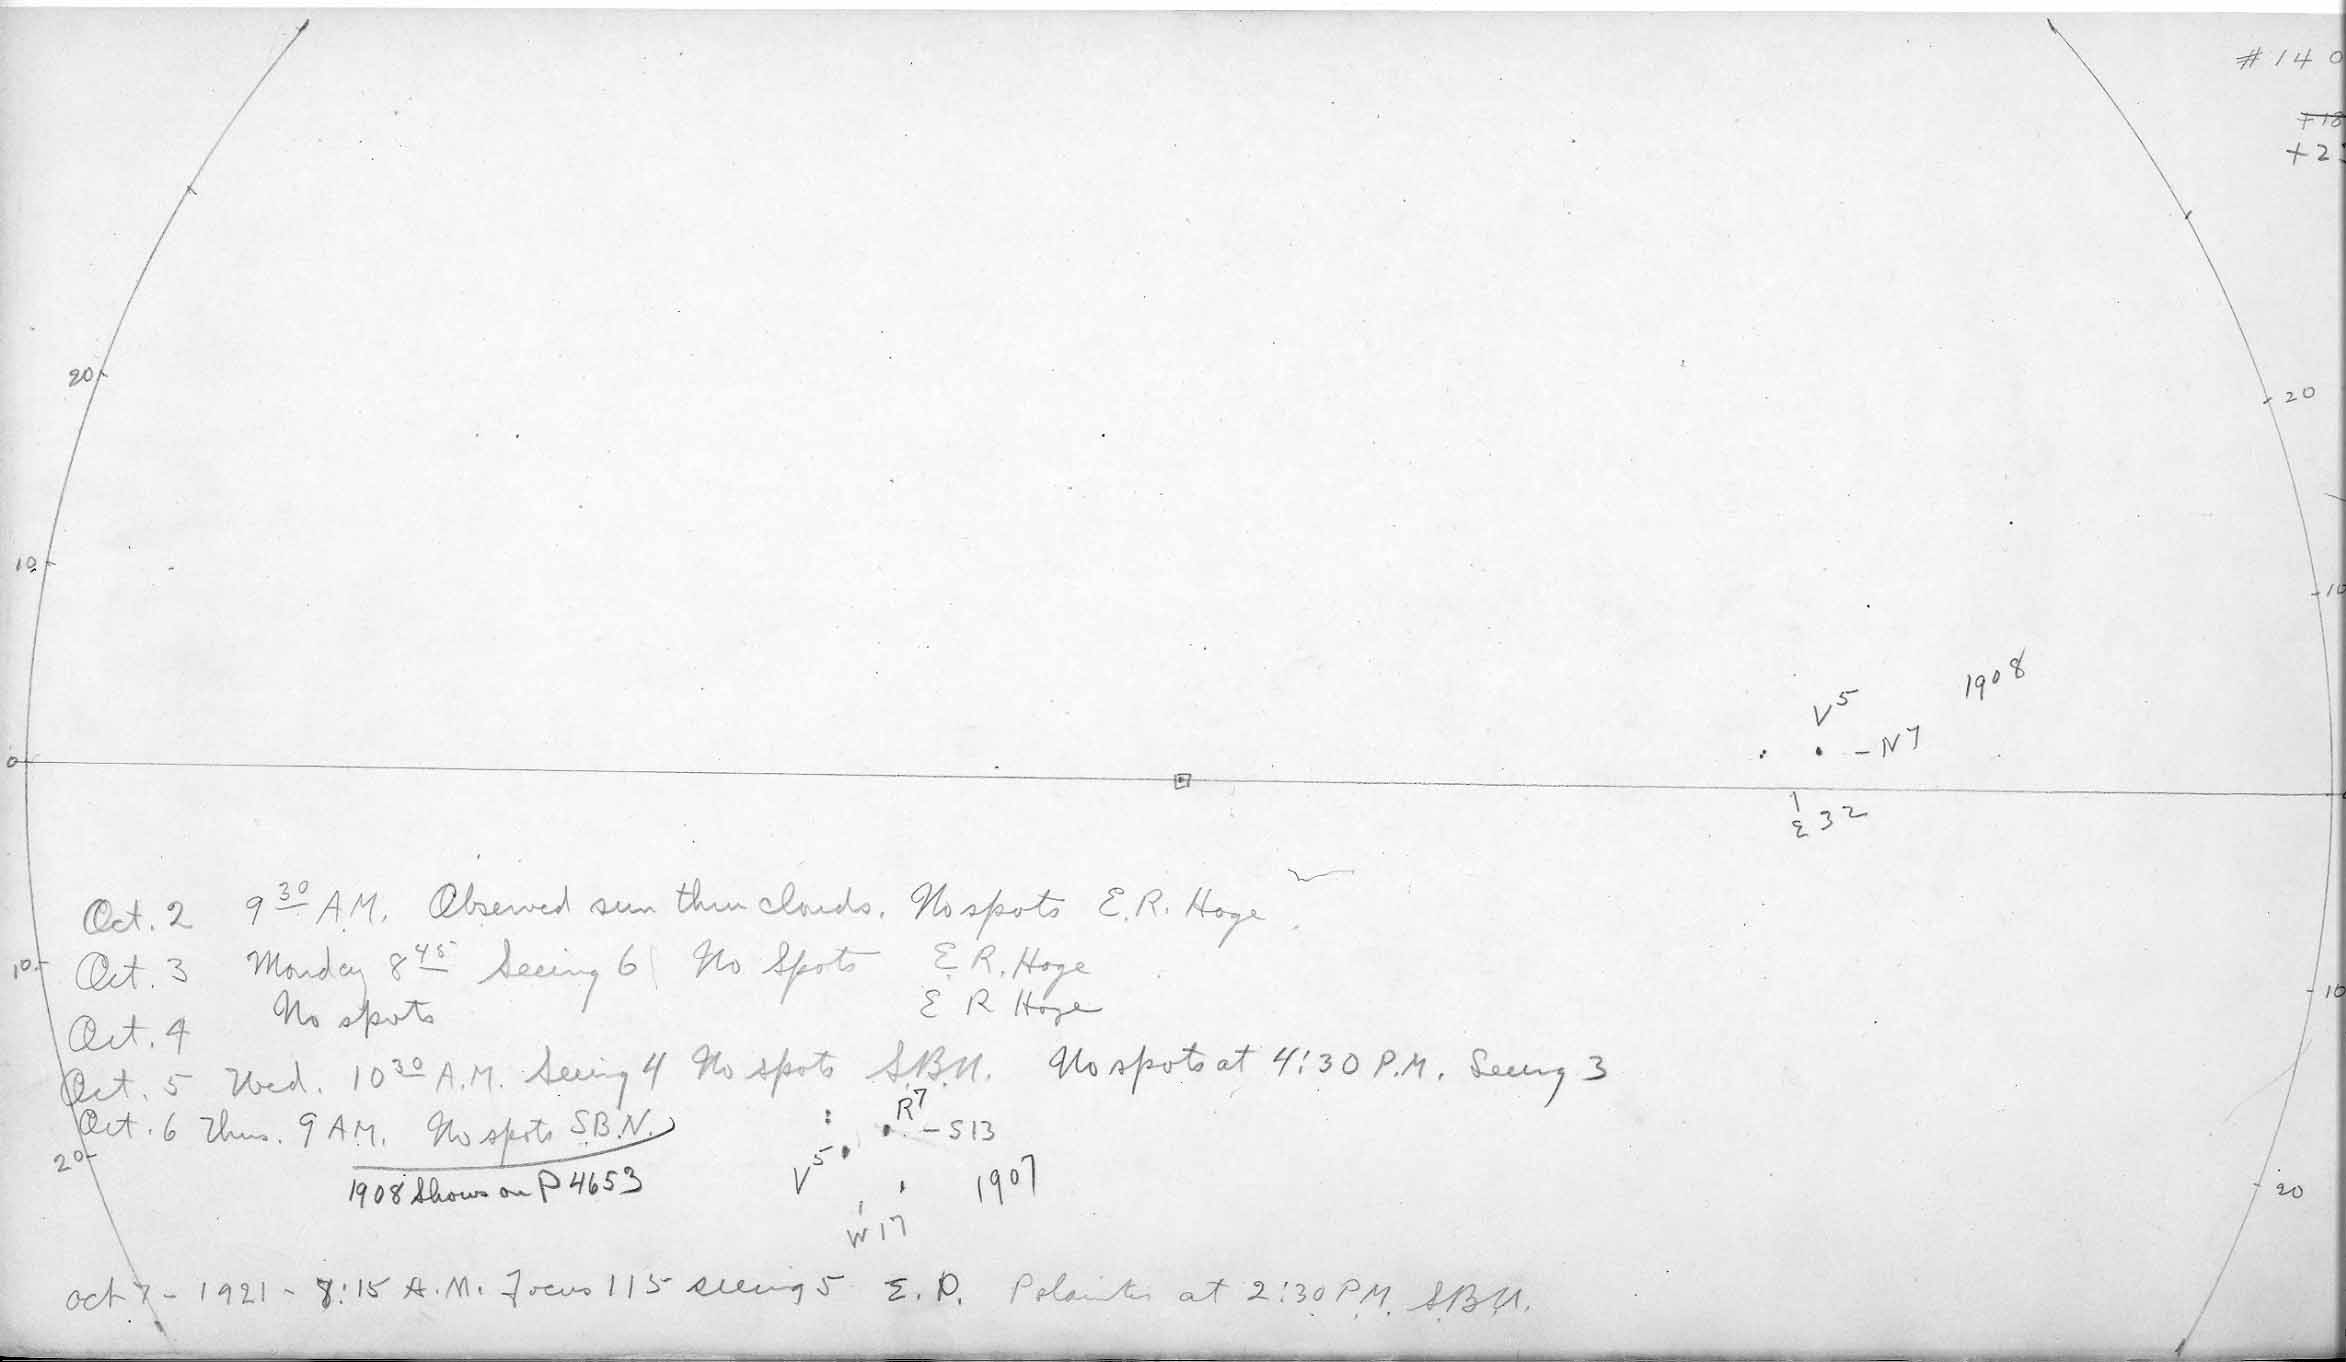 # 14 0
+18
+2
20
20
10
10
1908
V5
- N7
0
E 32
Oct. 2 9 30 A.M. Observed sun thru clouds. No spots E.R. Hoge
Oct. 3 Monday 8 45 Seeing 6 No Spots E.R. Hoge
10
Oct. 4 No spots E R Hoge
10
Oct. 5 Wed. 10 30 A.M. Seeing 4 No spots S.B.N. No spots at 4:30 P.M. Seeing 3
Oct. 6 Thus. 9 A.M. No spots S.B.N.
R7
- S13
V5
20
1908 Shows on P 4653
1907
20
W17
Oct 7 - 1921 - 8:15 A.M. Focus 115 seeing 5 E.P. Polarities at 2:30 P.M. S.B.N.